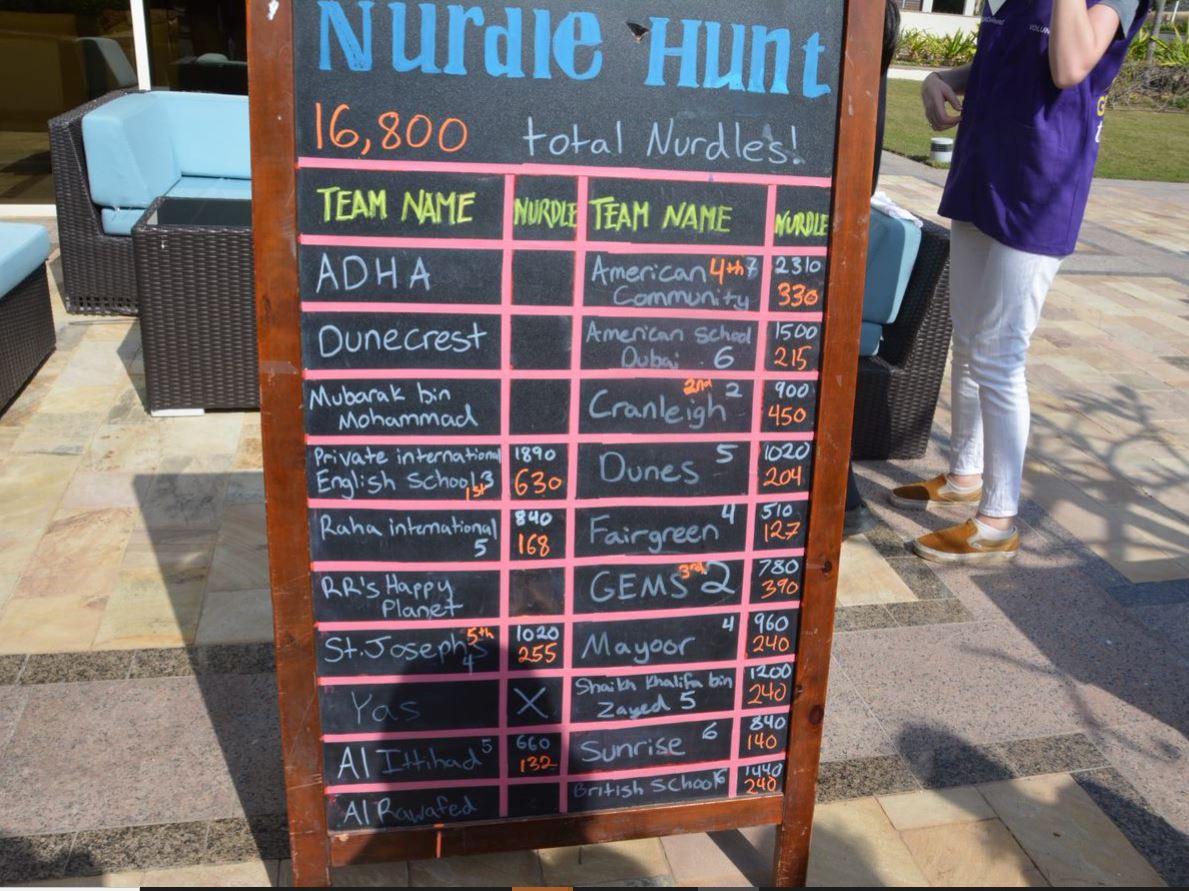 Nurdle Hunt
16,800 total Nurdles!
TEAM NAME NURDLE TEAM NAME NURDLE
ADHA
American 4th 7 2310
Community 330
Dunecrest
American School 1500
Dubai . 6 215
Mubarak bin
Mohammad
2nd
Cranleigh 2 900
450
Private international 1890
English School 3 630
1st
Dunes 5 1020
204
Raha international 840
5 168
Fairgreen 4 510
127
RR's Happy
Planet
3rd
GEMS 2 780
390
St. Joseph's 5th 1020
4 255
Mayoor 4 960
240
Yas X
Shaikh Khalifa bin 1200
Zayed 5 240
Al Ittihad 5 660
132
Sunrise 6 840
140
Al Rawafed
British School 6 1440
240